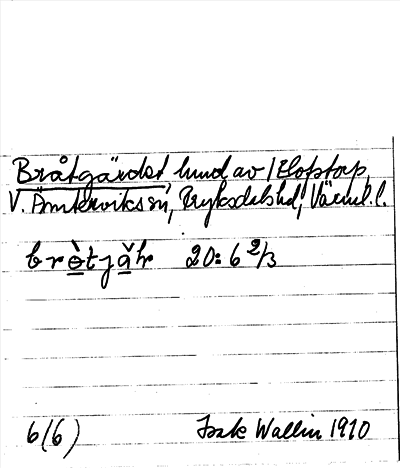 Bråtgärdet hemd av /Elofstorp,
V. Ämterviks sn, Fryksdals hd, Värml. l.
brètjǎr 20: 6 2/3
6(6) Isak Wallin 1910